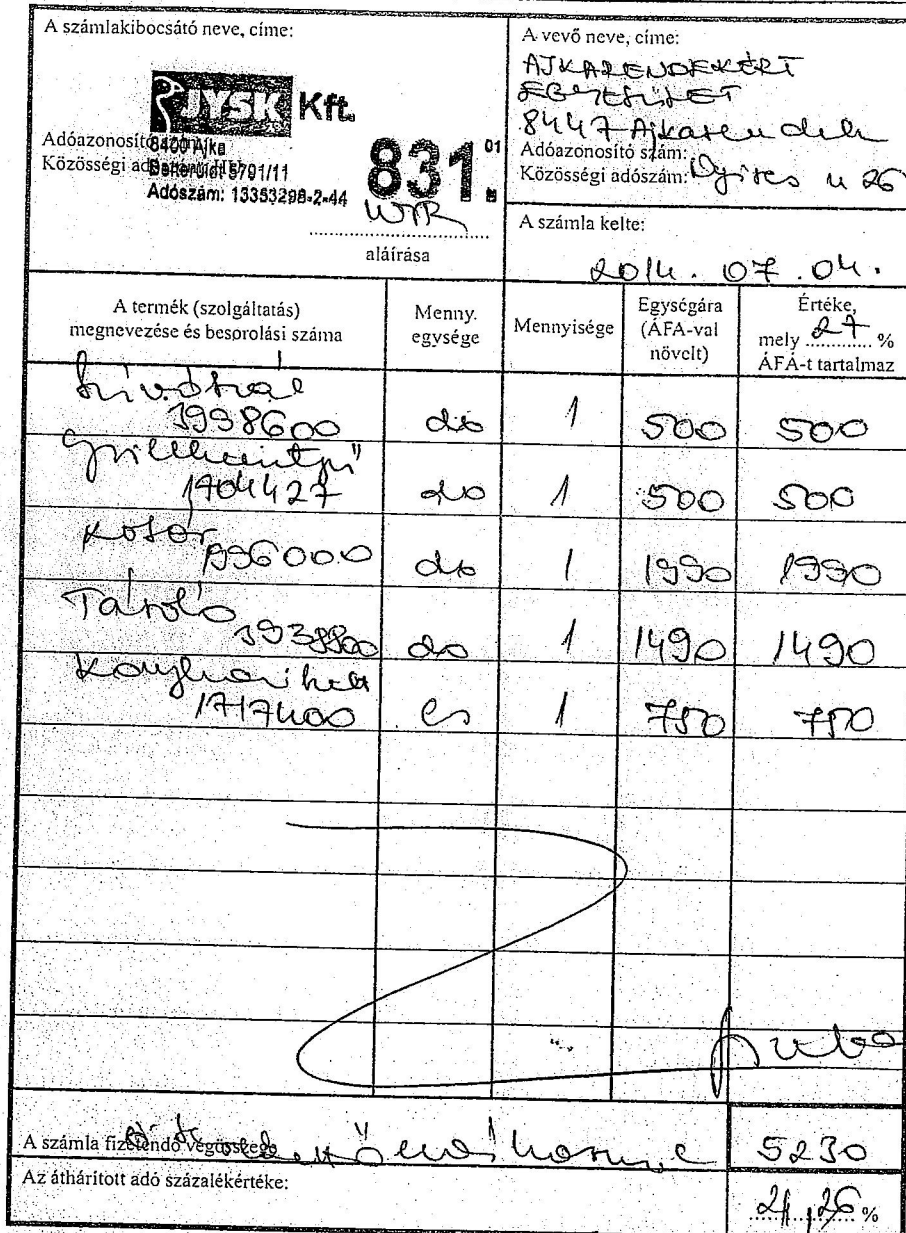 A számlakibocsátó neve, címe:
JYSK Kft.
Adóazonosító
8400 Ajka
Közösségi
5791/11
Adószám: 13353298-2-44
831.
01
aláírása
A vevő neve, címe:
AJKARENDEKÉRT
EGYESÜLET
8447 Ajkarendek
Adóazonosító szám:
Közösségi adószám: Gyires u 26
A számla kelte:
2014. 07. 04.
A termék (szolgáltatás)
megnevezése és besorolási száma
Menny.
egysége
Mennyisége
Egységára
(ÁFA-val
növelt)
Értéke,
mely 27 %
ÁFÁ-t tartalmaz
Szívószál
3998600 db 1 500 500
1704427 db 1 500 500
Kosár
db 1 1990 1990
Tároló
db 1 1490 1490
1717400 cs 1 750 750
A számla fizetendő végösszege 5230
Az áthárított adó százalékértéke:
21,26 %